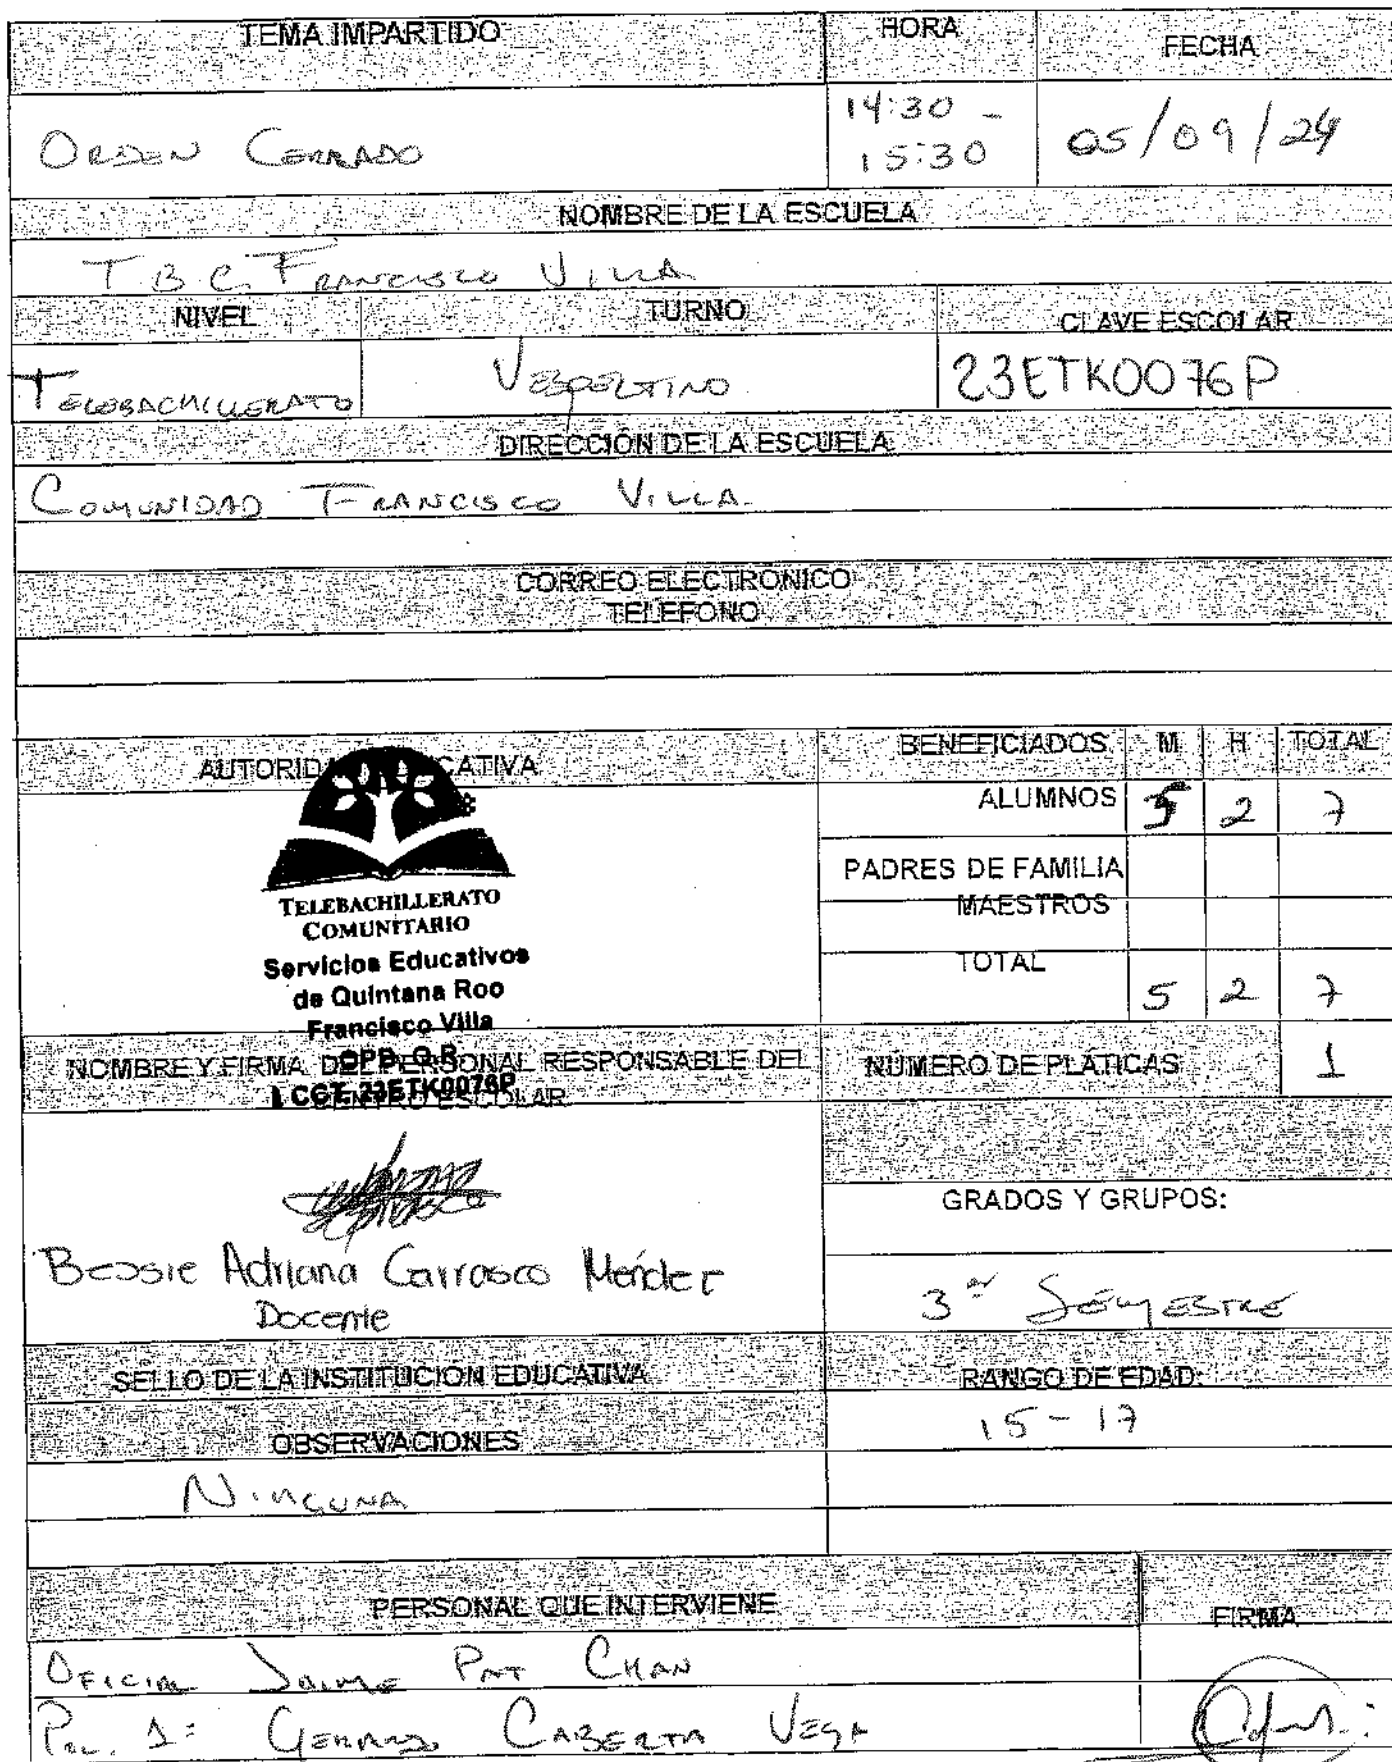 TEMA IMPARTIDO HORA FECHA
ORDEN CERRADO 14:30 - 15:30 05/09/24
NOMBRE DE LA ESCUELA
T.B.C. FRANCISCO VILLA
NIVEL TURNO CLAVE ESCOLAR
TELEBACHILLERATO VESPERTINO 23ETK0076P
DIRECCIÓN DE LA ESCUELA
COMUNIDAD FRANCISCO VILLA.
CORREO ELECTRÓNICO
TELEFONO
AUTORIDAD EDUCATIVA BENEFICIADOS M H TOTAL
ALUMNOS 5 2 7
PADRES DE FAMILIA
MAESTROS
TOTAL 5 2 7
TELEBACHILLERATO
COMUNITARIO
Servicios Educativos
de Quintana Roo
Francisco Villa
OPB, Q.R.
CCT 23ETK0076P
NOMBRE Y FIRMA DEL PERSONAL RESPONSABLE DEL
CENTRO ESCOLAR
NUMERO DE PLÁTICAS 1
Bessie Adriana Carrasco Méndez
Docente
GRADOS Y GRUPOS:
3er SEMESTRE
SELLO DE LA INSTITUCION EDUCATIVA RANGO DE EDAD:
15 - 17
OBSERVACIONES
NINGUNA
PERSONAL QUE INTERVIENE FIRMA
OFICIAL JAIME PAT CHAN
POL. 1= GERARDO CABERTA VEGA